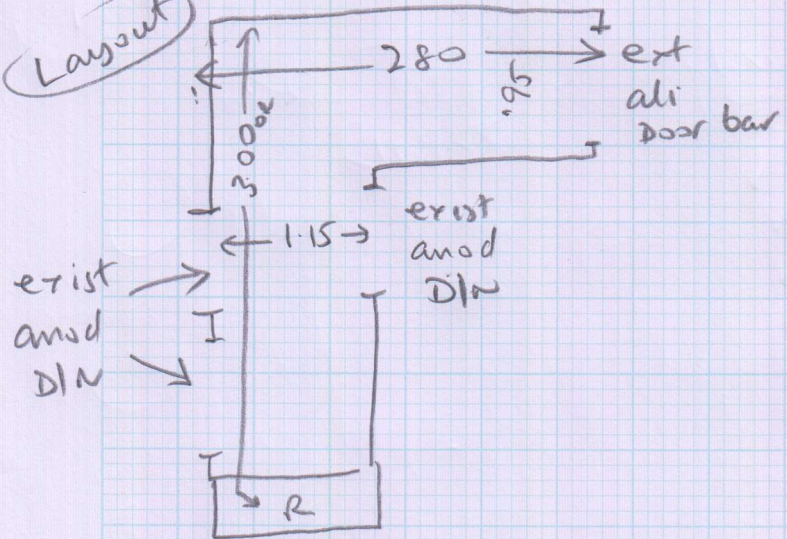 Layout
280
.95
ext
ali
Door bar
300
1.15
exist
anod
D/N
exist
anod
D/N
R